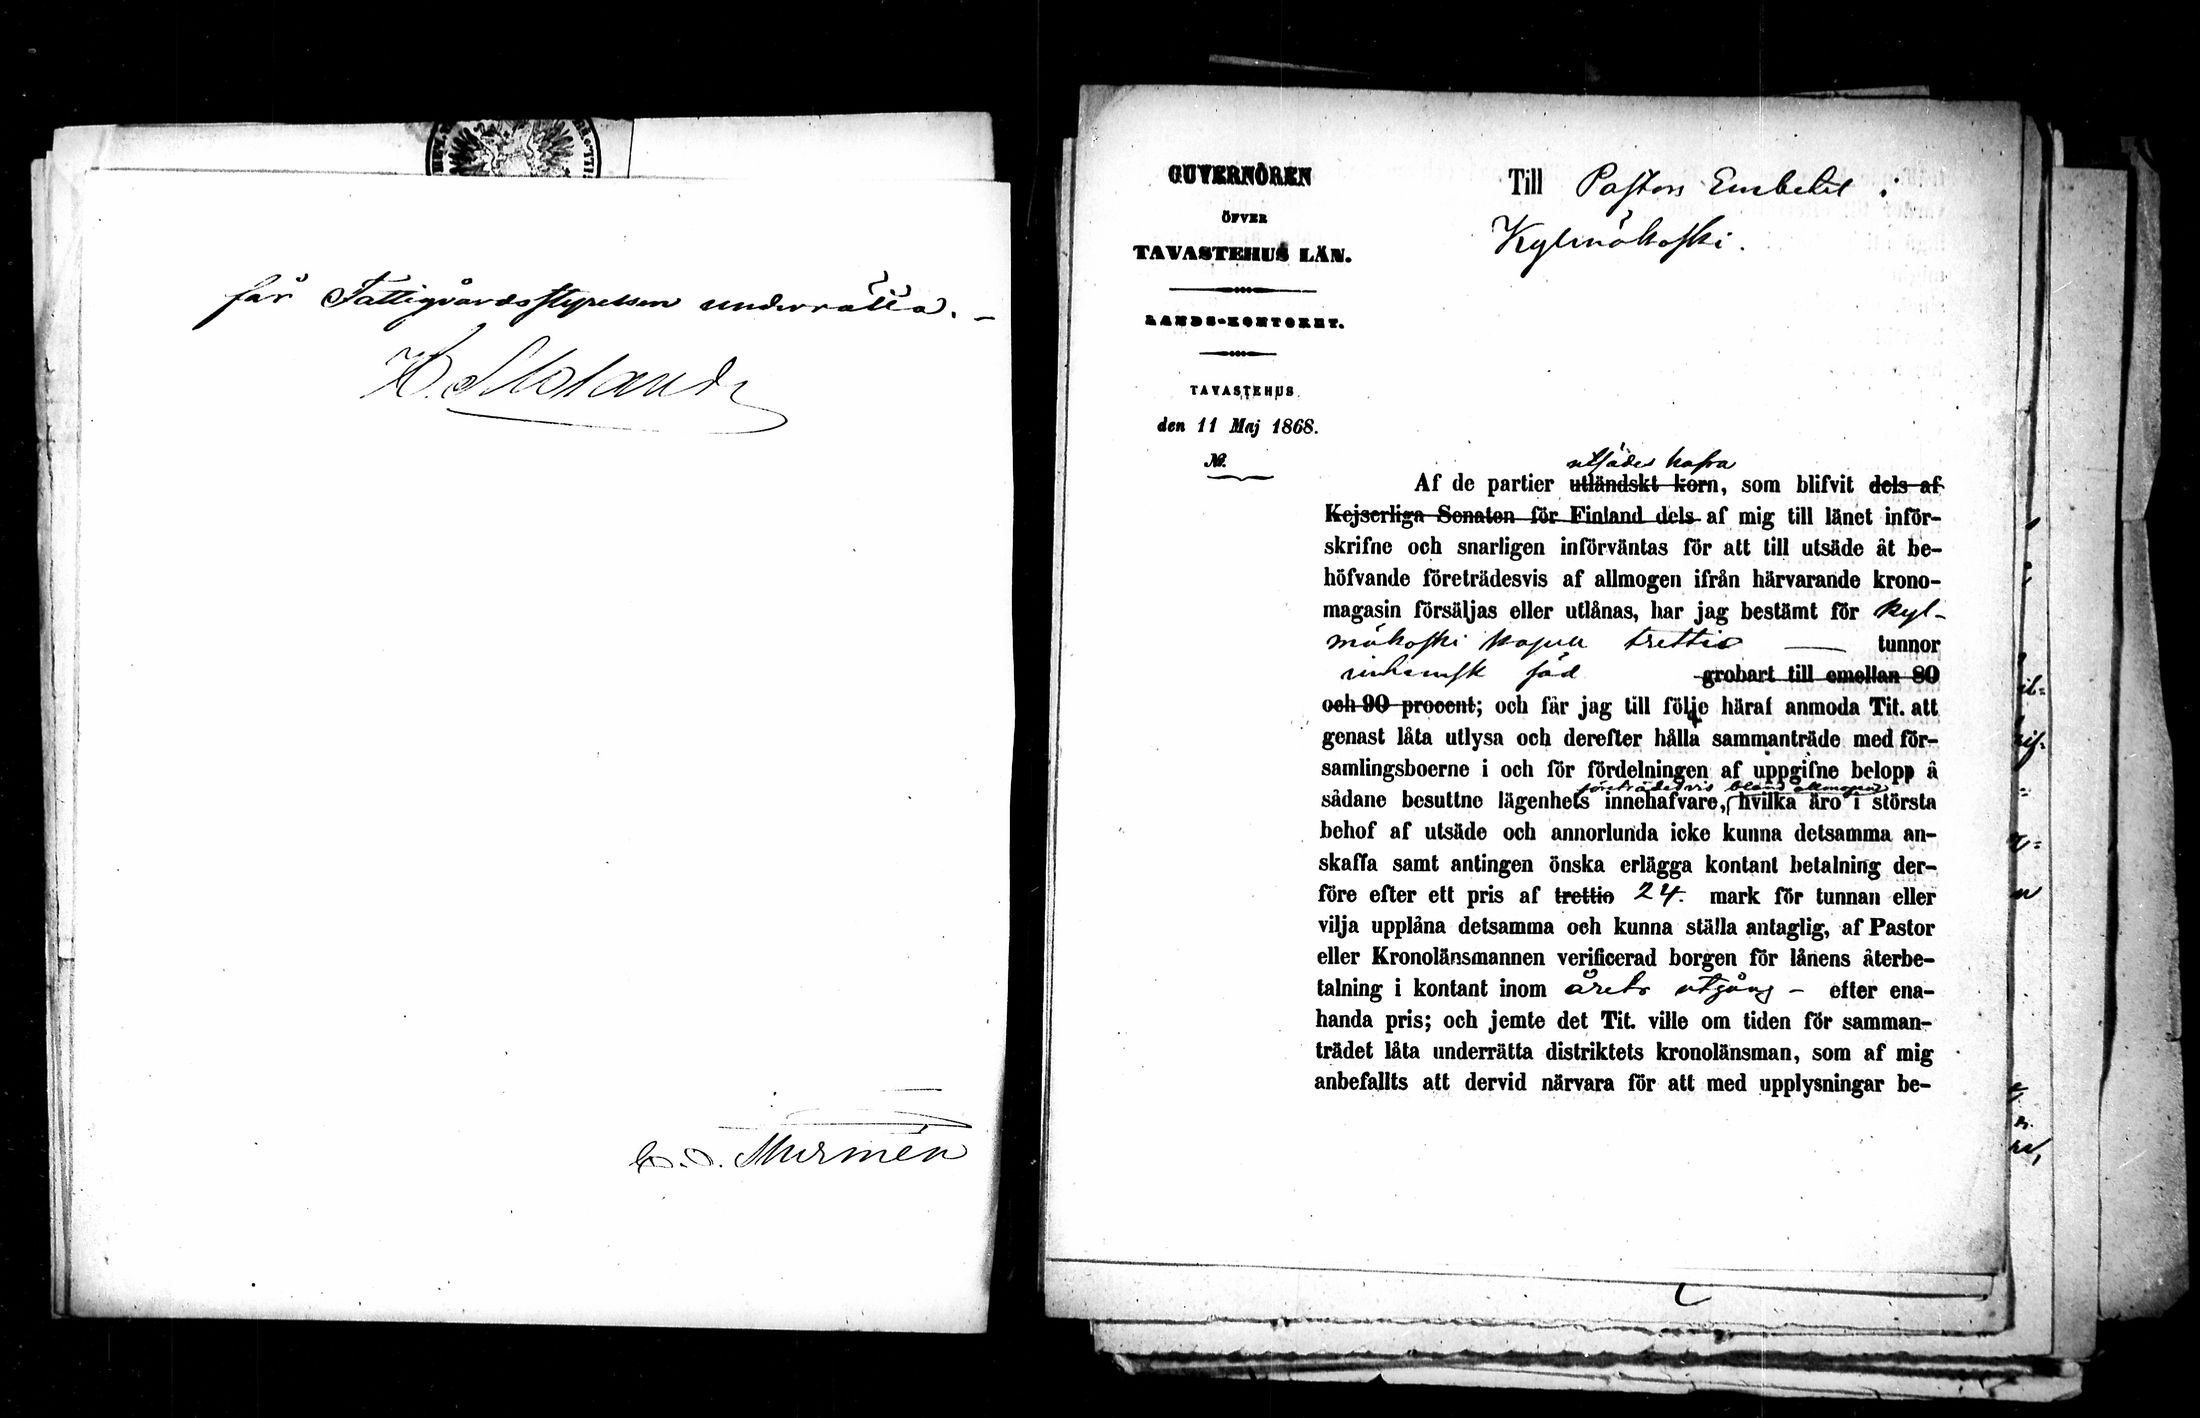 får Fattigvårdsstyrelsen underrätta. —
C. O. Murmén
GUVERNÖREN
ÖFVER
TAVASTEHUS LÄN.
LANDS-KONTORET.
TAVASTEHUS
den 11 Maj 1868.
№.
Till Pastors Embetet i
Kylmäkoski.
utsädes hafra
Af de partier utländskt korn, som blifvit dels af
Kejserliga Senaten för Finland dels af mig till länet inför-
skrifne och snarligen införväntas för att till utsäde åt be-
höfvande företrädesvis af allmogen ifrån härvarande krono-
magasin försäljas eller utlånas, har jag bestämt för Kyl-
mäkoski kapell trettio — tunnor
inhemsk säd grobart till emellan 80
och 90 procent; och får jag till följe häraf anmoda Tit. att
genast låta utlysa och derefter hålla sammanträde med för-
samlingsboerne i och för fördelningen af uppgifne belopp å
företrädesvis bland allmogen
sådane besuttne lägenhets innehafvare, hvilka äro i största
behof af utsäde och annorlunda icke kunna detsamma an-
skaffa samt antingen önska erlägga kontant betalning der-
före efter ett pris af trettio 24. mark för tunnan eller
vilja upplåna detsamma och kunna ställa antaglig, af Pastor
eller Kronolänsmannen verificerad borgen för lånens återbe-
talning i kontant inom årets utgång – efter ena-
handa pris; och jemte det Tit. ville om tiden för samman-
trädet låta underrätta distriktets kronolänsman, som af mig
anbefallts att dervid närvara för att med upplysningar be-